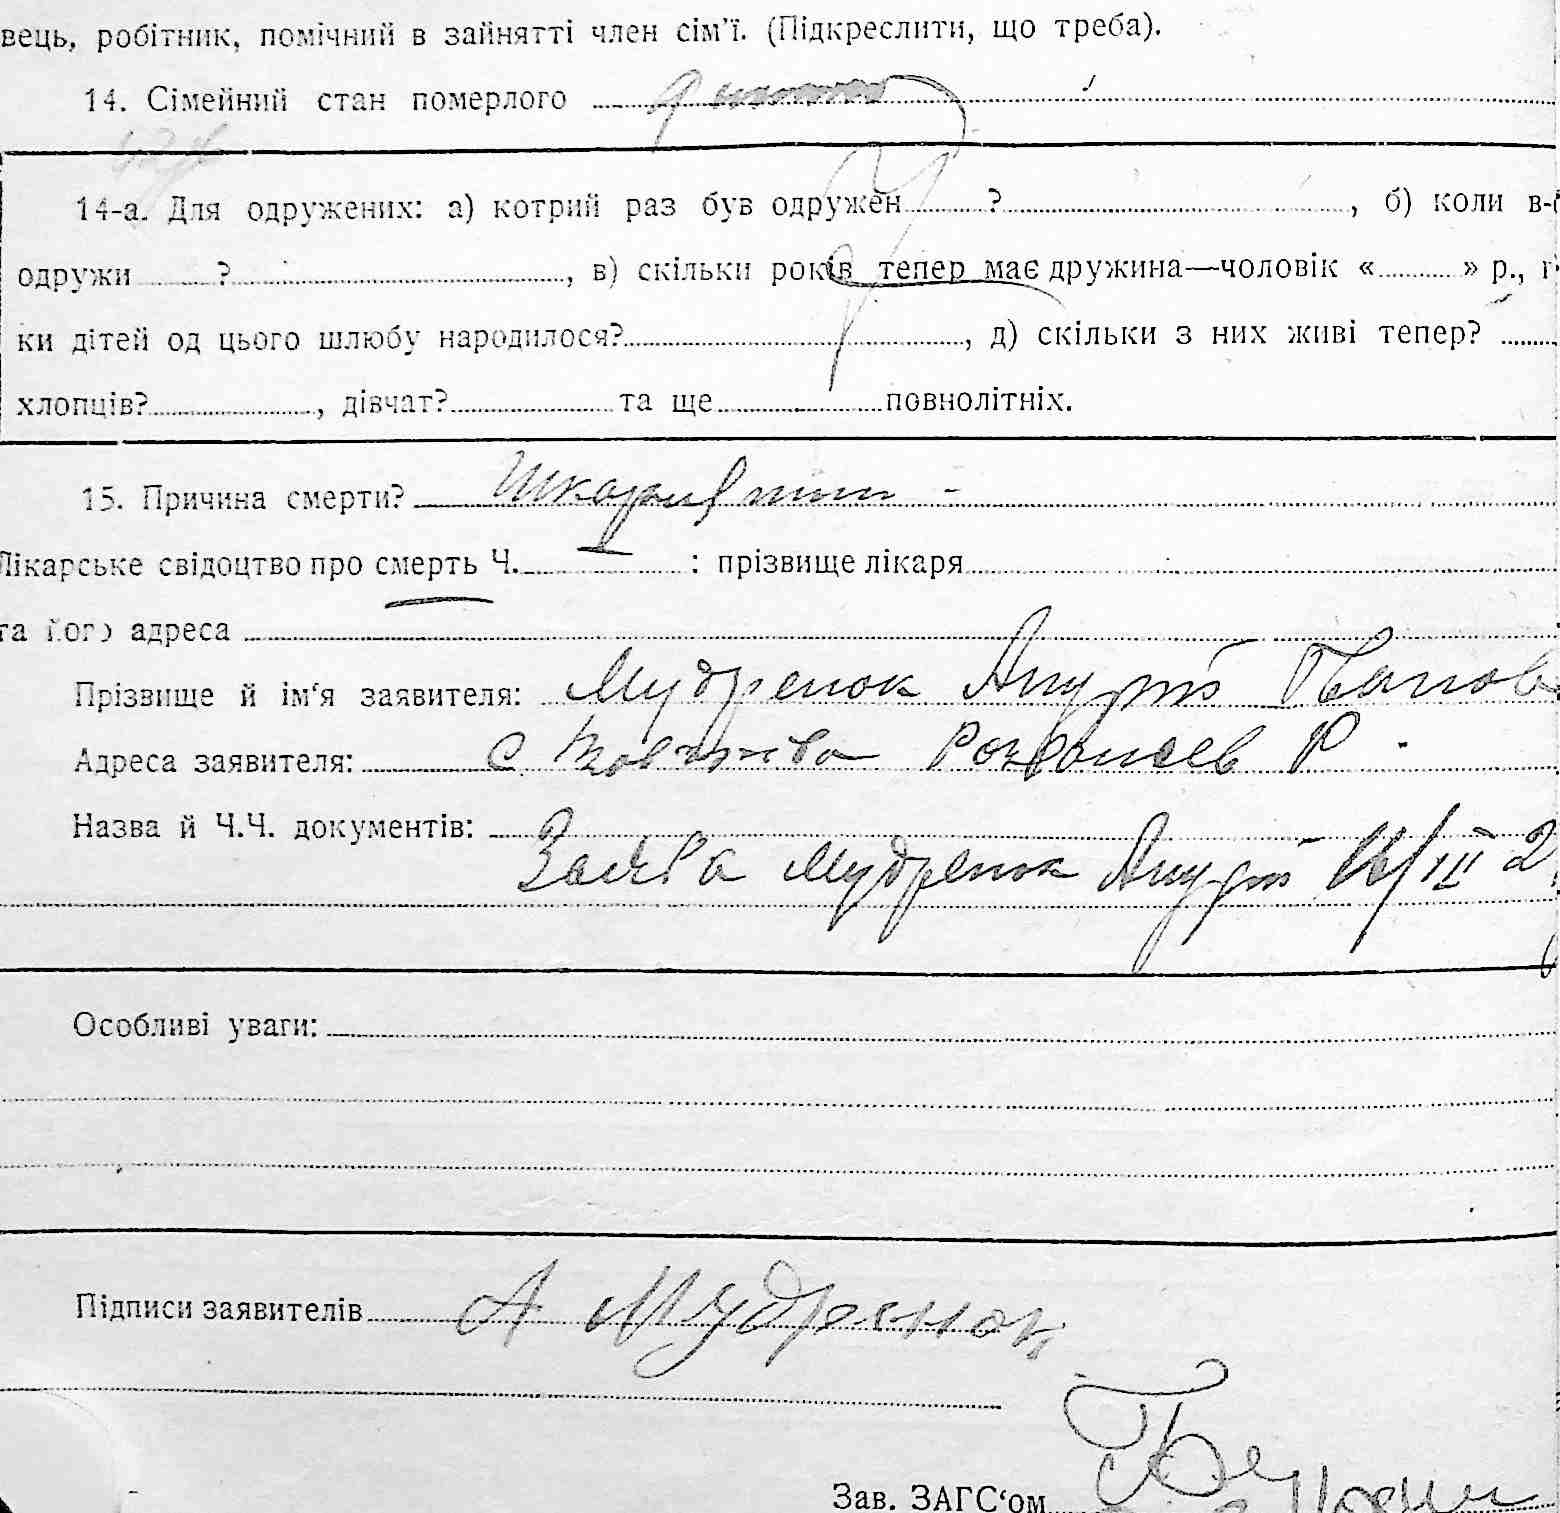 вець, робітник, помічний в зайнятті член сім'ї. (Підкреслити, що треба).
14. Сімейний стан померлого
14-а. Для одружених: а) котрий раз був одружен ? , б) коли в-
одружи ? , в) скільки років тепер має дружина—чоловік « » р., г
ки дітей од цього шлюбу народилося? , д) скільки з них живі тепер?
хлопців? , дівчат? та ще повнолітніх.
15. Причина смерти? Шкарлятини -
Лікарське свідоцтво про смерть Ч. : прізвище лікаря
та його адреса
Прізвище й ім'я заявителя: Мудренок Андрій
Адреса заявителя: с. Р
Назва й Ч.Ч. документів:
Заява Мудренок Андрій 16/III 2
Особливі уваги:
Підписи заявителів А Мудренок
Зав. ЗАГС'ом